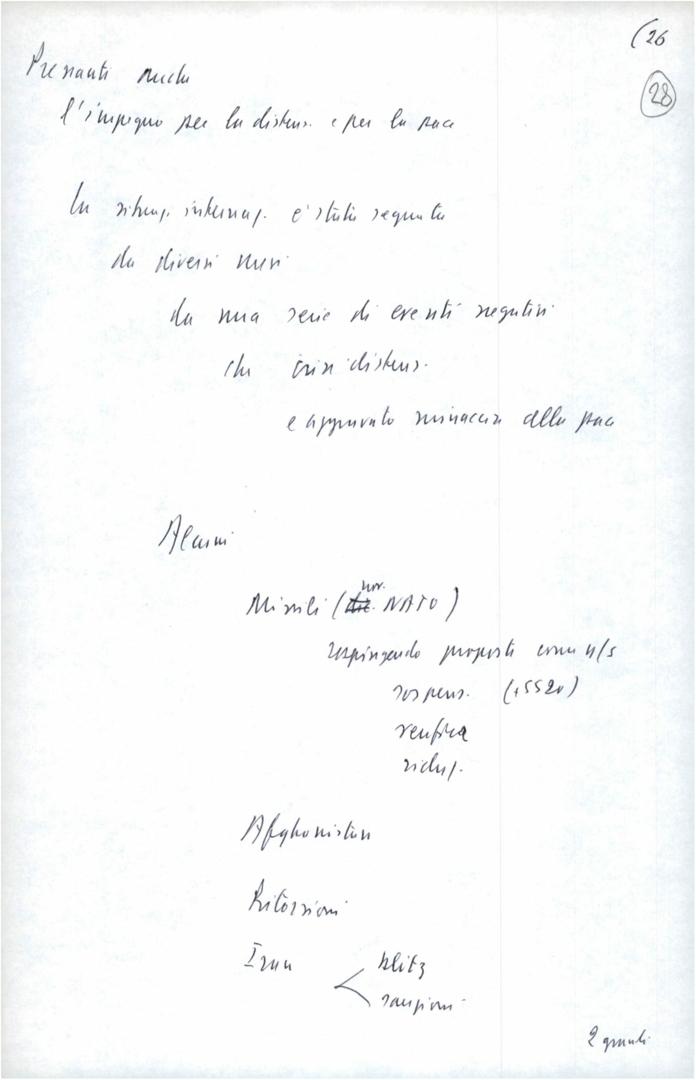 (26
28
Pressante anche
l'impegno per la distens. e per la pace
La situaz. internaz. è stata segnata
da diversi mesi
da una serie di eventi negativi
che crisi distens.
e aggravato minaccia alla pace
Alcuni
nov.
Missili (dic. NATO)
respingendo proposte come n/s
sospens. (+SS20)
verifica
riduz.
Afghanistan
Ritorsioni
Iran
blitz
sanzioni
2 quali